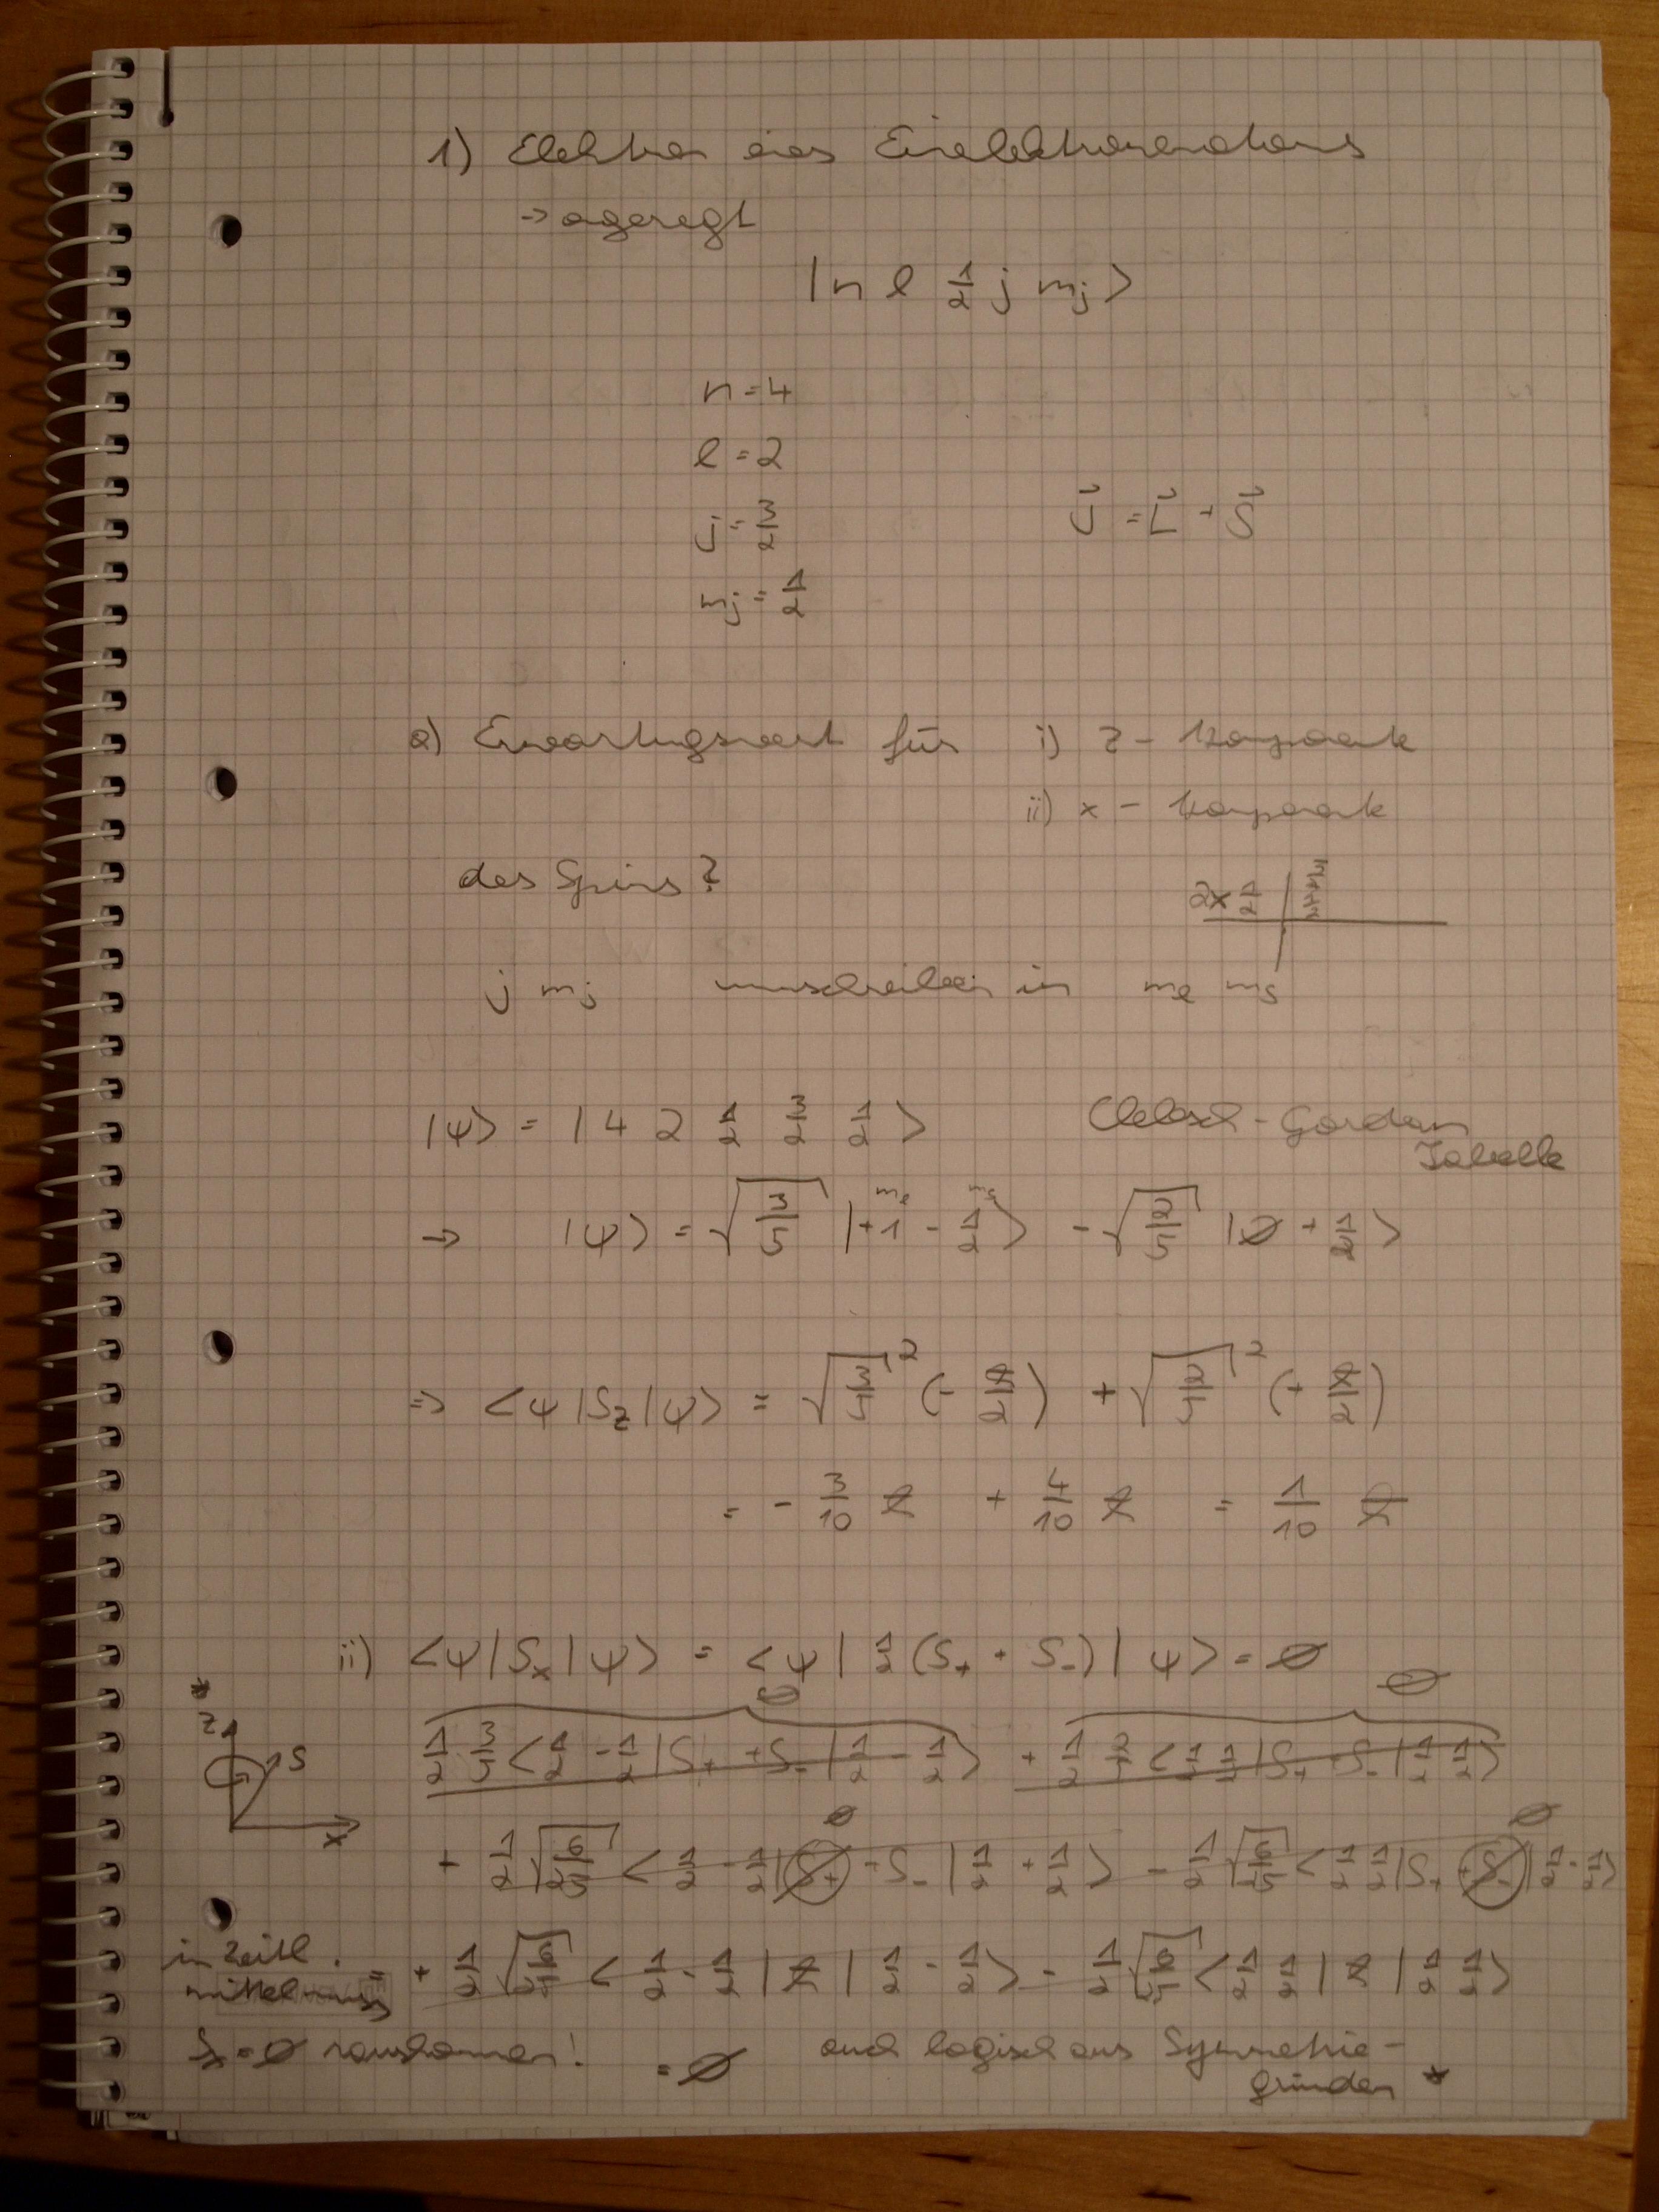 1) Elektron eines Einelektronenatoms
→ angeregt
|n l 1/2 j mj>
n = 4
l = 2
j = 3/2
J⃗ = L⃗ + S⃗
mj = 1/2
a) Erwartungswert für i) z - Komponente
ii) x - Komponente
des Spins?
2x1/2 | 3/2 +1/2
j mj umschreiben in ml ms
|ψ> = | 4 2 1/2 3/2 1/2 > Clebsch - Gordan
Tabelle
→ |ψ> = √(3/5) |+1 -1/2> - √(2/5) |0 +1/2>
ml ms
⇒ <ψ|Sz|ψ> = √(3/5)² (-ħ/2) + √(2/5)² (+ħ/2)
= - 3/10 ħ + 4/10 ħ = 1/10 ħ
ii) <ψ|Sx|ψ> = <ψ| 1/2 (S+ + S-) | ψ> = 0
0 0
* z S x
1/2 3/5 <1/2 -1/2|S+ +S-|1/2 -1/2> + 1/2 2/5 <1/2 1/2|S+ S-|1/2 1/2>
0 0
+ 1/2 √(6/25) <1/2 -1/2|S+ +S-|1/2 +1/2> - 1/2 √(6/25) <1/2 1/2|S+ +S-|1/2 -1/2>
= + 1/2 √(6/25) <1/2 -1/2|ħ|1/2 -1/2> - 1/2 √(6/25) <1/2 1/2|ħ|1/2 1/2>
in zeitl.
mittel muss
Sx = 0 rauskommen!
= 0 auch logisch aus Symmetrie-
gründen *